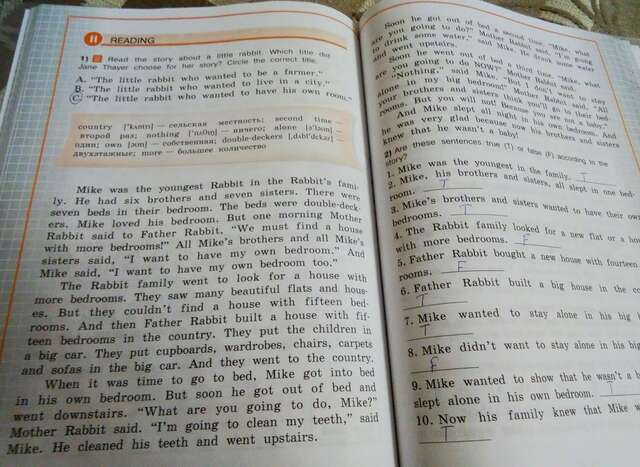 II READING
1) Read the story about a little rabbit. Which title did
Jane Thayer choose for her story? Circle the correct title.
A. "The little rabbit who wanted to be a farmer."
B. "The little rabbit who wanted to live in a city."
C. "The little rabbit who wanted to have his own room."
country ['kʌntri] — сельская местность; second time —
второй раз; nothing ['nʌθɪŋ] — ничего; alone [ə'ləʊn] —
один; own [əʊn] — собственная; double-deckers [ˌdʌbl'dekəz] —
двухэтажные; more — большее количество
Mike was the youngest Rabbit in the Rabbit's fami-
ly. He had six brothers and seven sisters. There were
seven beds in their bedroom. The beds were double-deck-
ers. Mike loved his bedroom. But one morning Mother
Rabbit said to Father Rabbit, "We must find a house
with more bedrooms!" All Mike's brothers and all Mike's
sisters said, "I want to have my own bedroom." And
Mike said, "I want to have my own bedroom too."
The Rabbit family went to look for a house with
more bedrooms. They saw many beautiful flats and hous-
es. But they couldn't find a house with fifteen bed-
rooms. And then Father Rabbit built a house with fif-
teen bedrooms in the country. They put the children in
a big car. They put cupboards, wardrobes, chairs, carpets
and sofas in the big car. And they went to the country.
When it was time to go to bed, Mike got into bed
in his own bedroom. But soon he got out of bed and
went downstairs. "What are you going to do, Mike?"
Mother Rabbit said. "I'm going to clean my teeth," said
Mike. He cleaned his teeth and went upstairs.
Soon he got out of bed a second time. "Mike, what
are you going to do?" Mother Rabbit said. "I'm going
to drink some water," said Mike. He drank some water
and went upstairs.
Soon he went out of bed a third time. "Mike, what
are you going to do now?" Mother Rabbit said.
"Nothing," said Mike, "but I don't want to stay
alone in my big bedroom!" Mother Rabbit said, "All
your brothers and sisters think you'll go to their bed-
rooms. But you will not! Because you are not a baby."
And Mike slept all night in his own bedroom. And
he was very glad because now his brothers and sisters
knew that he wasn't a baby!
2) Are these sentences true (T) or false (F) according to the
story?
1. Mike was the youngest in the family. T
2. Mike, his brothers and sisters, all slept in one bed-
room. T
3. Mike's brothers and sisters wanted to have their own
bedrooms. T
4. The Rabbit family looked for a new flat or a
with more bedrooms. F
5. Father Rabbit bought a new house with fourteen
rooms. F
6. Father Rabbit built a big house in the
T
7. Mike wanted to stay alone in his big
T
8. Mike didn't want to stay alone in his big
F
9. Mike wanted to show that he wasn't a
slept alone in his own bedroom. T
10. Now his family knew that Mike
T